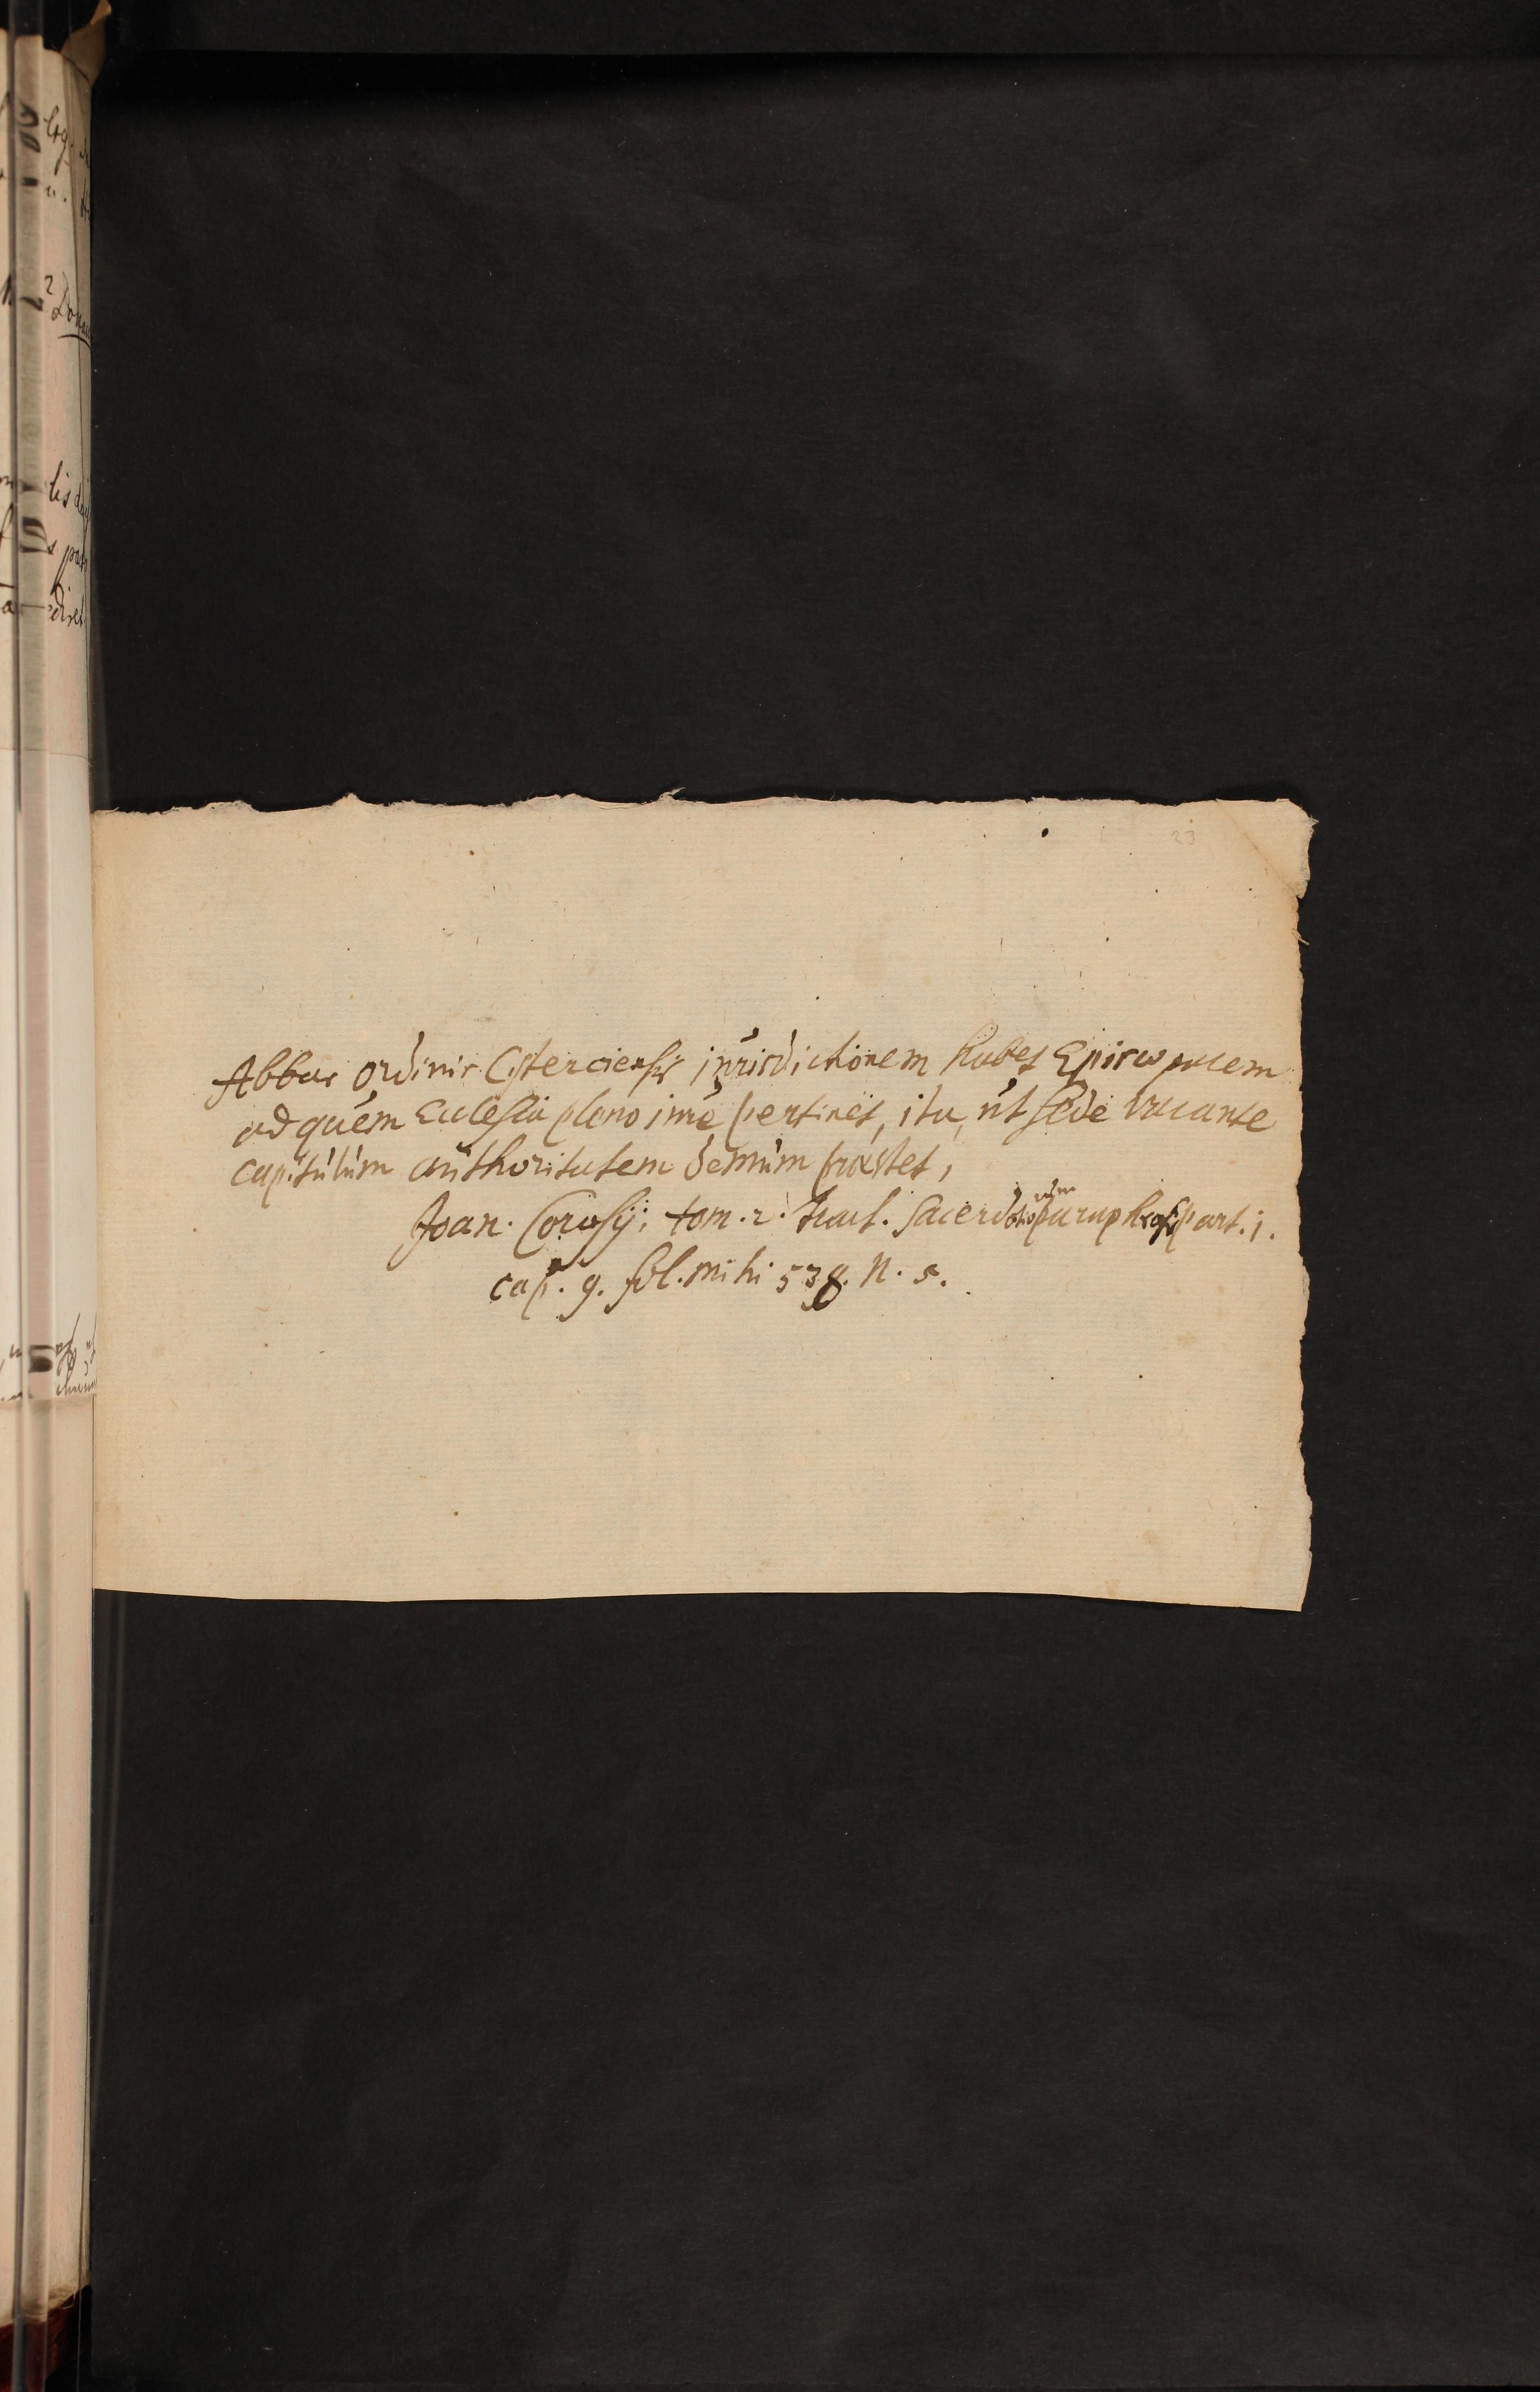 23
Abbas ordinis Cisterciensis jurisdictionem habet Episcopalem
ad quem Ecclesia pleno iure pertinet, ita, ut sede vacante
capitulum authoritatem demum præstet,
Joan. Corasij. tom. 2. tract. Sacerdotiorum paraphrasis part. 1.
cap. 9. fol. mihi 538. N. 5.